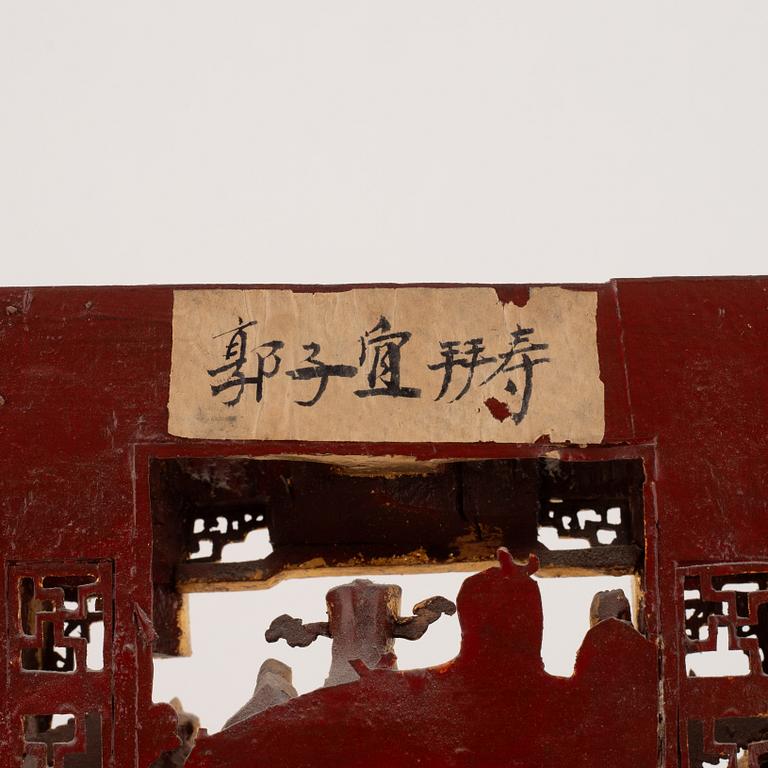 郭子宜拜寿